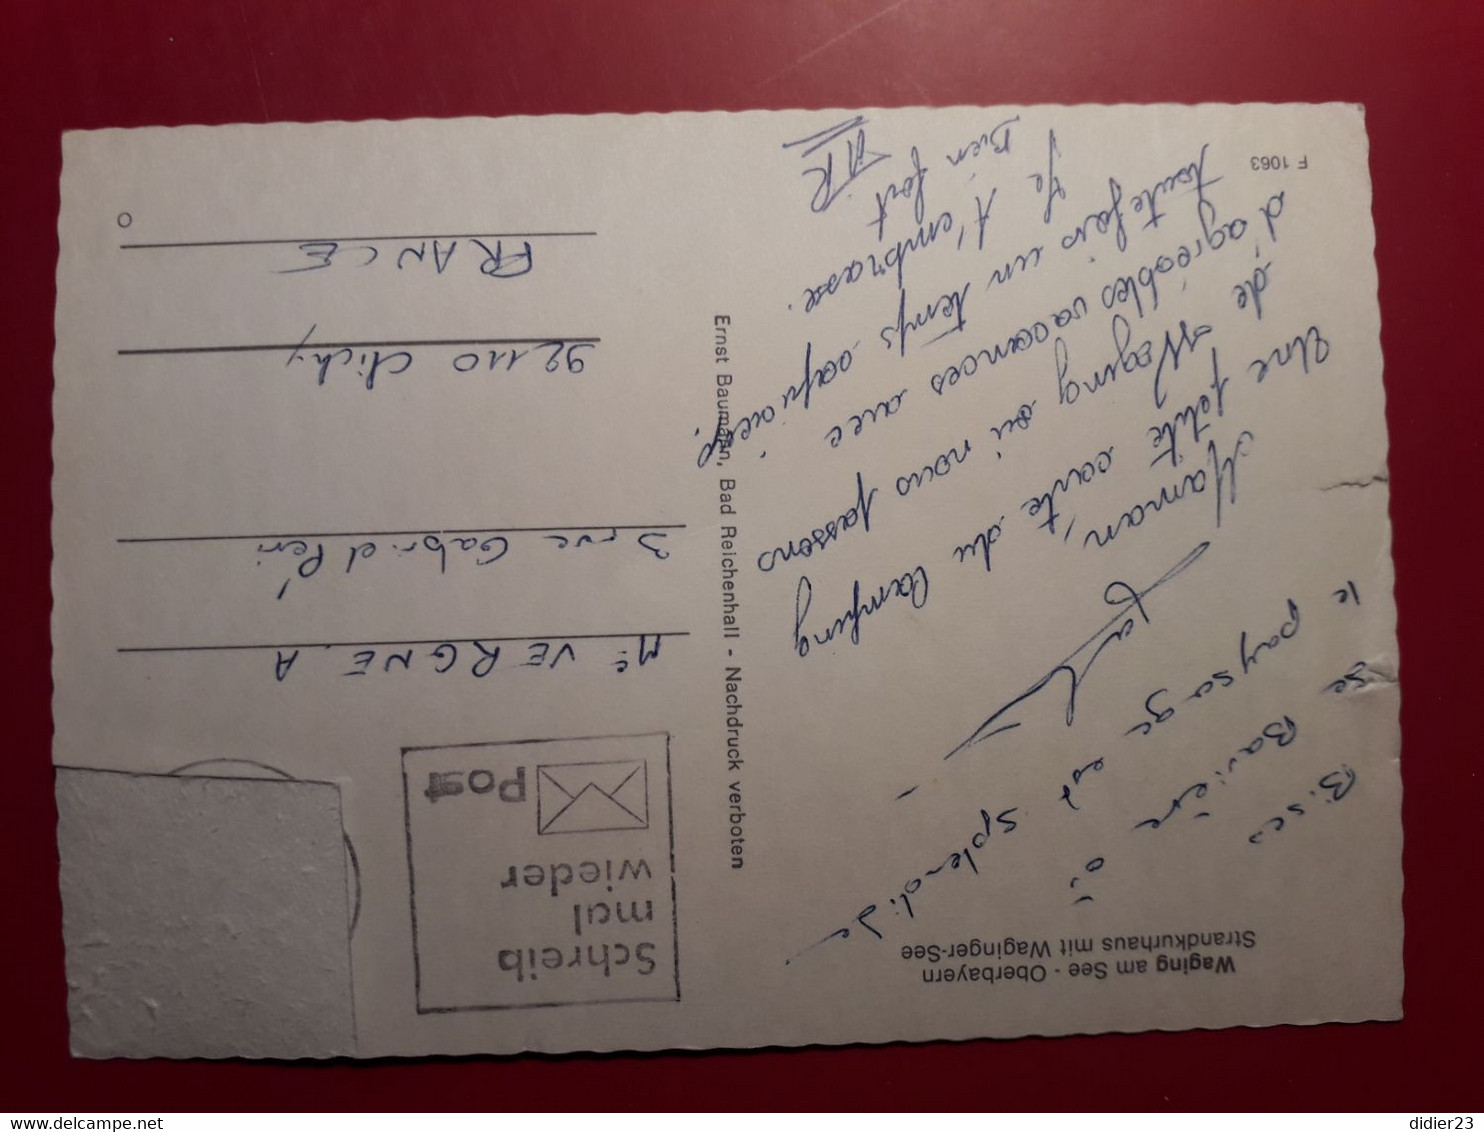 Waging am See - Oberbayern
Strandkurhaus mit Waginger-See
Bises
de Bavière où
le paysage est splendide
Maman,
Une petite carte du Camping
de Waging où nous passons
d'agréables vacances avec
toutefois un temps capricieux.
Je t'embrasse.
Bien fort
AR
F 1063
Ernst Baumann, Bad Reichenhall - Nachdruck verboten
Schreib
mal
wieder
Post
Me VERGNE. A
3 rue Gabriel Péri
92110 Clichy
FRANCE
didier23